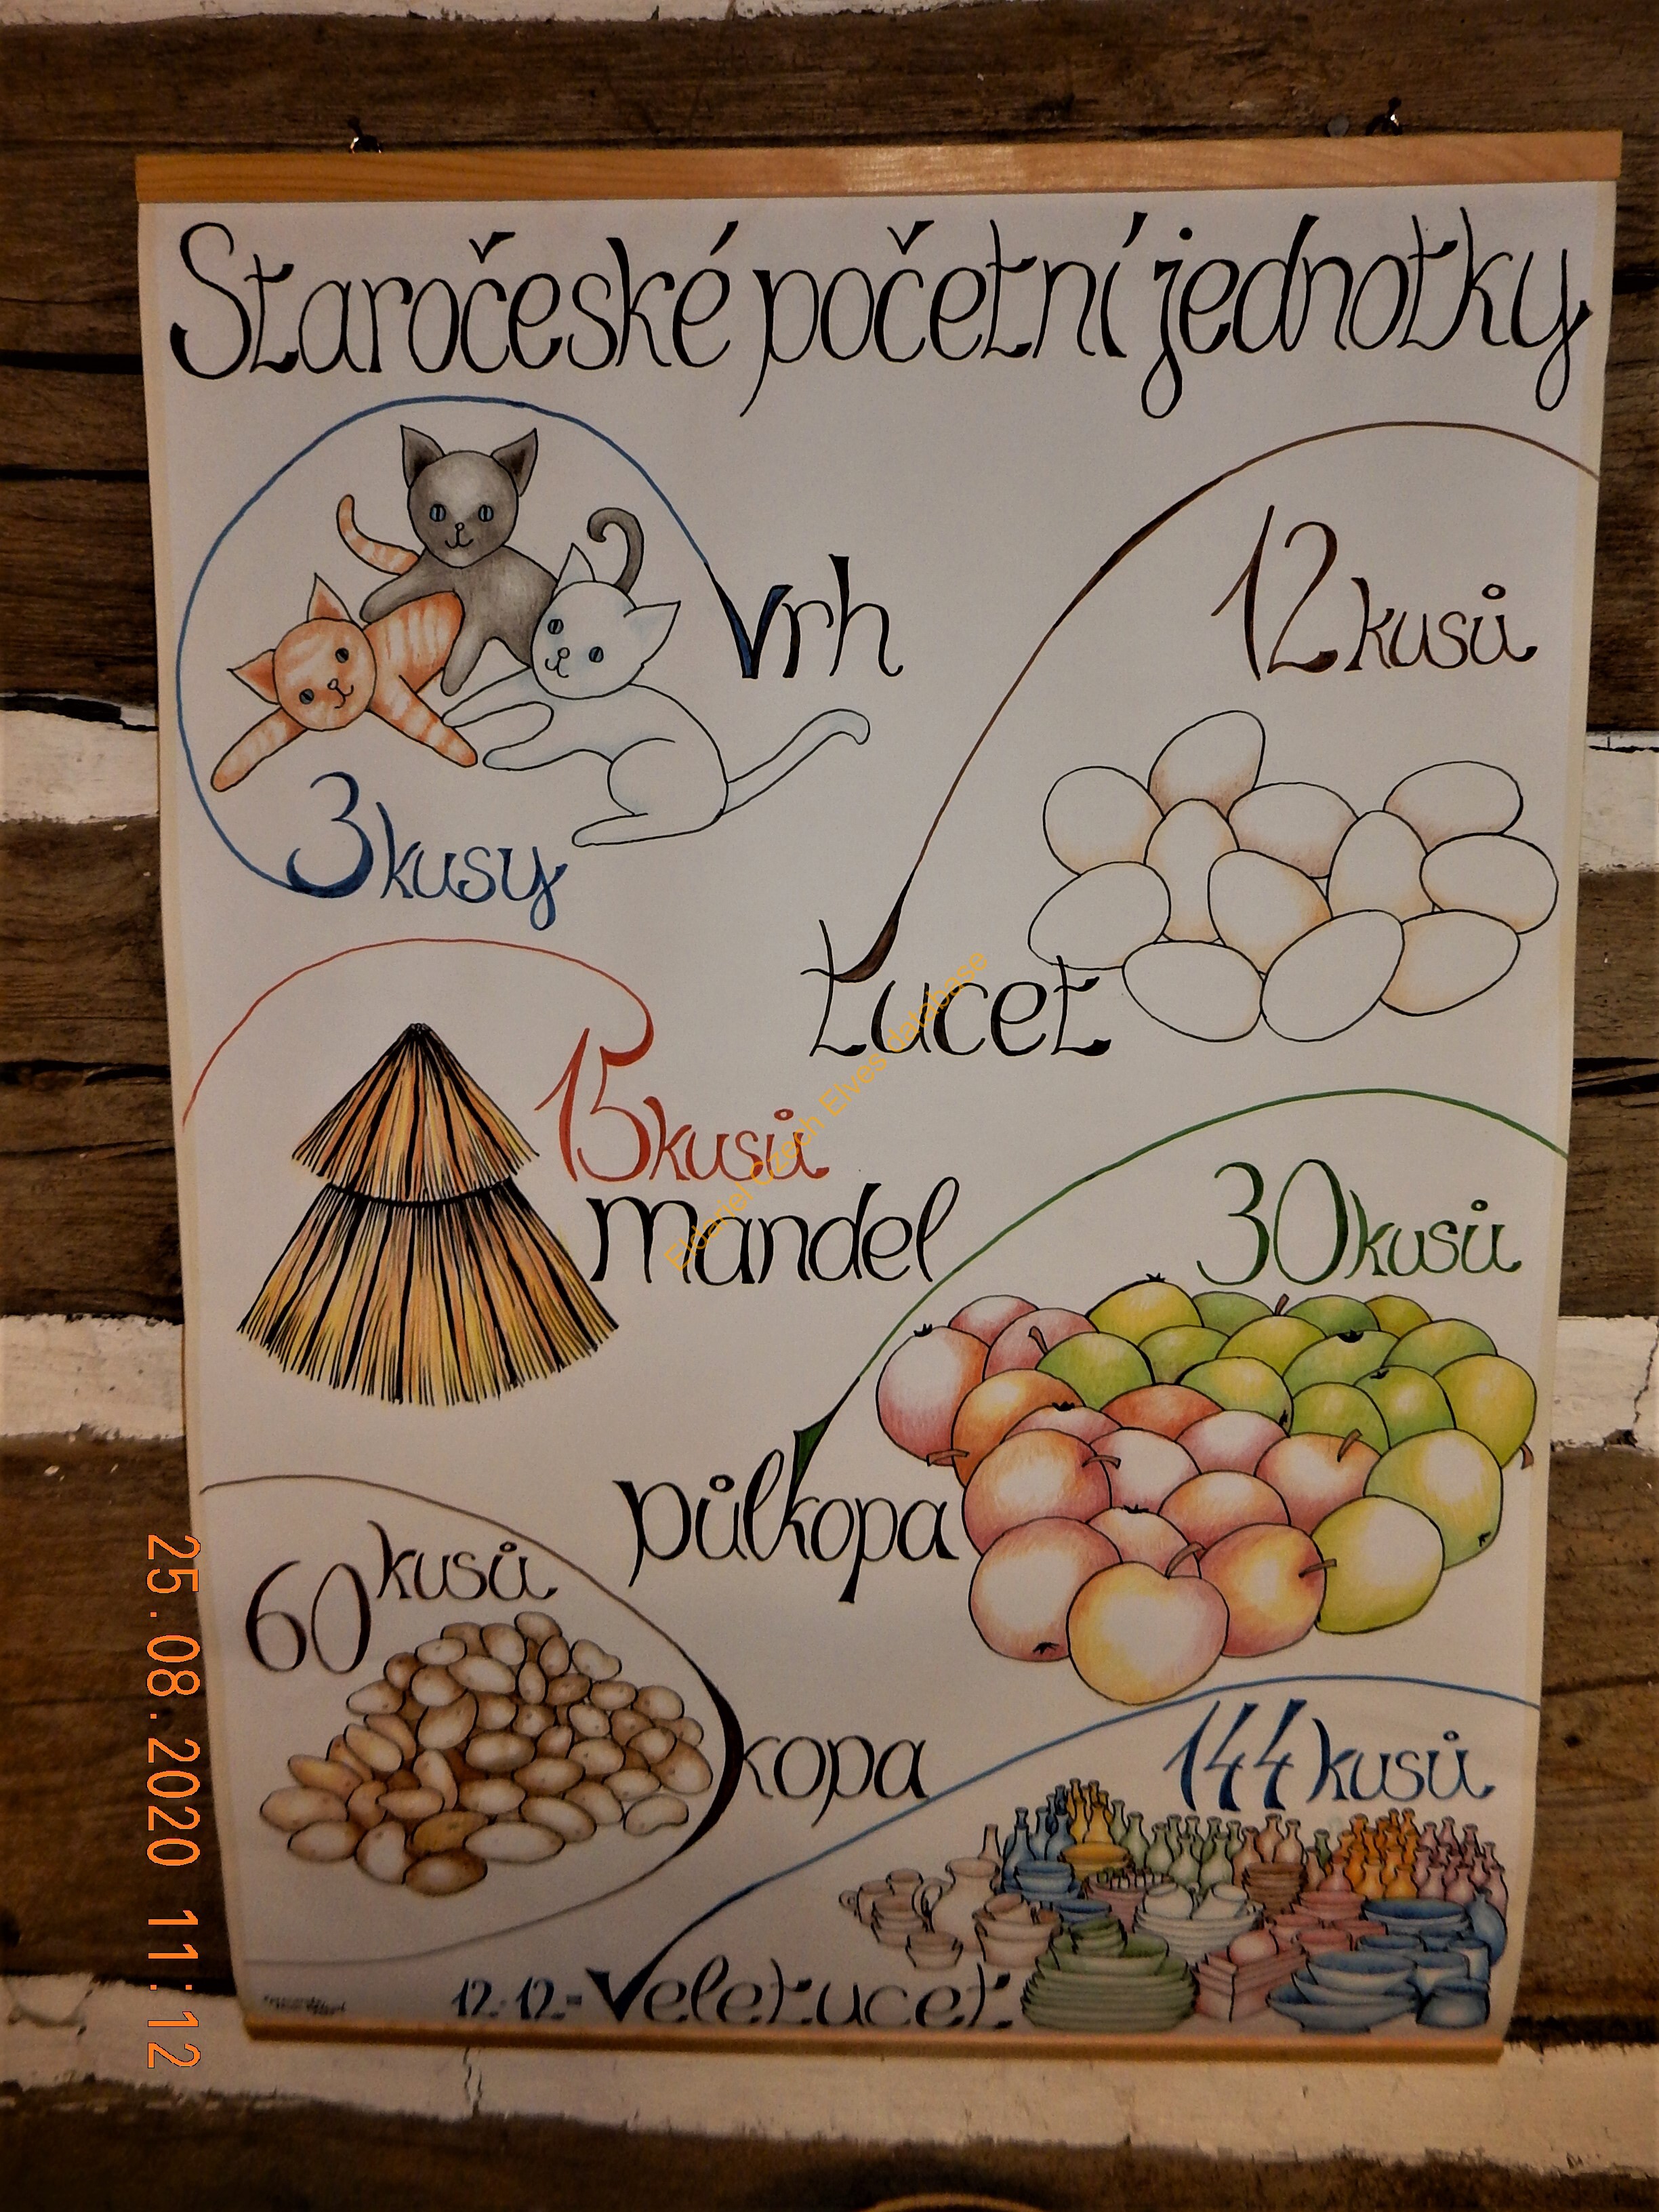 Staročeské početní jednotky
vrh
3 kusy
12 kusů
tucet
15 kusů
mandel
30 kusů
půlkopa
60 kusů
kopa
144 kusů
12·12=veletucet
Eldariel Czech Elves database
25.08.2020 11:12